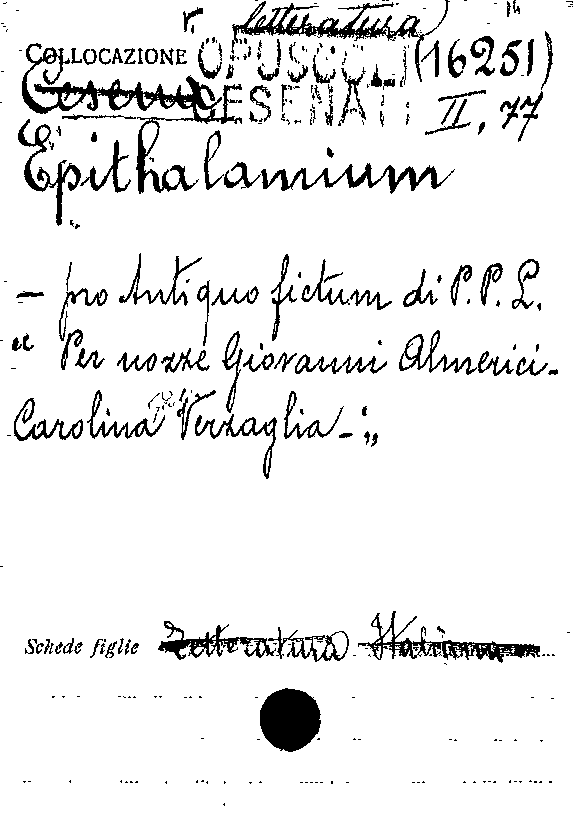 letteratura
COLLOCAZIONE OPUSCOLI (16251)
Cesena CESENATI II, 77
Epithalamium
— pro Antiquo fictum di P. P. L.
" Per nozze Giovanni Almerici-
Carolina Verzaglia - „
Schede figlie Letteratura Italiana